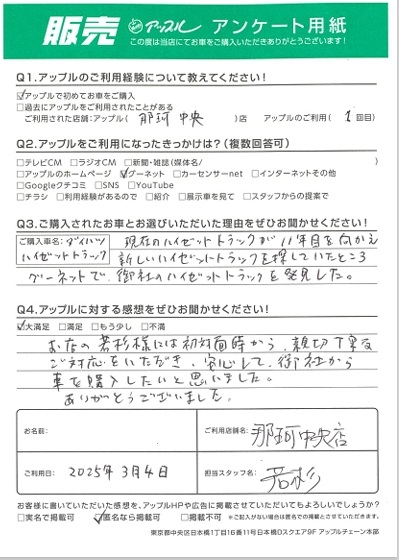 販売 アップル アンケート用紙
この度は当店にてお車をご購入いただきありがとうございます!
Q1.アップルのご利用経験について教えてください!
☑アップルで初めてお車をご購入
□過去にアップルをご利用されたことがある
ご利用された店舗:アップル( 那珂中央 )店 アップルのご利用( 1 回目)
Q2.アップルをご利用になったきっかけは?(複数回答可)
□テレビCM □ラジオCM □新聞・雑誌(媒体名/ )
□アップルのホームページ ☑グーネット □カーセンサーnet □インターネットその他
□Googleクチコミ □SNS □YouTube
□チラシ □利用経験があるので □紹介 □展示車を見て □スタッフからの提案で
Q3.ご購入されたお車とお選びいただいた理由をぜひお聞かせください!
ご購入車名:ダイハツ
ハイゼットトラック
現在のハイゼットトラックが11年目を向かえ
新しいハイゼットトラックを探していたところ
グーネットで、御社のハイゼットトラックを発見した。
Q4.アップルに対する感想をぜひお聞かせください!
☑大満足 □満足 □もう少し □不満
お店の若杉様には初対面時から、親切丁寧な
ご対応をいただき、安心して、御社から
車を購入したいと思いました。
ありがとうございました。
お名前:
ご利用店舗名:
那珂中央店
ご利用日: 2025年3月4日
担当スタッフ名:
若杉
お客様に書いていただいた感想を、アップルHPや広告に掲載させていただいてもよろしいでしょうか?
□実名で掲載可 ☑匿名なら掲載可 □掲載不可 ※ご記入がない場合は匿名での掲載とさせていただきます。
東京都中央区日本橋1丁目16番11号日本橋Dスクエア9F アップルチェーン本部